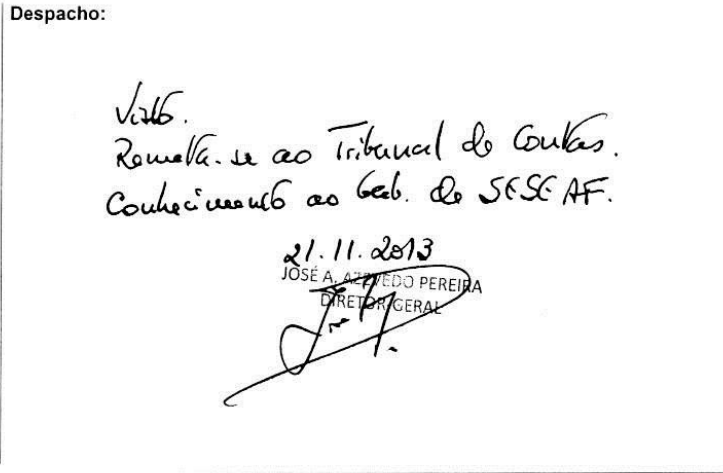 Despacho:
Visto.
Remeta-se ao Tribunal de Contas.
Conhecimento ao Gab. do SESEAF.
21.11.2013
JOSÉ A. AZEVEDO PEREIRA
DIRETOR-GERAL